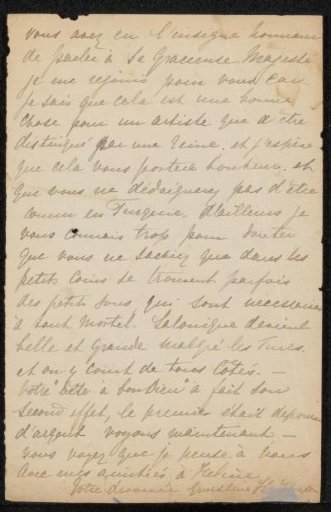 vous avez eu l'insigne honneur
de parler à Sa Gracieuse Majesté
je me rejouis pour vous car
je sais que cela est une bonne
chose pour un artiste que d'être
distingué par une Reine, et j'espère
que cela vous portera bonheur et
que vous ne dédaignerez pas d'être
connu en Turquie. D'ailleurs je
vous connais trop pour douter
que vous ne sachiez que dans les
petits coins se trouvent parfois
des petits sous qui sont necessaires
à tout mortel. Salonique devient
belle et grande malgré les Turcs
et on y court de tous côtés. —
Votre à bon Dieu a fait son
second effet, le premier était
d'argent voyons maintenant —
vous voyez que je pense à vous
Avec mes amitiés à
Votre